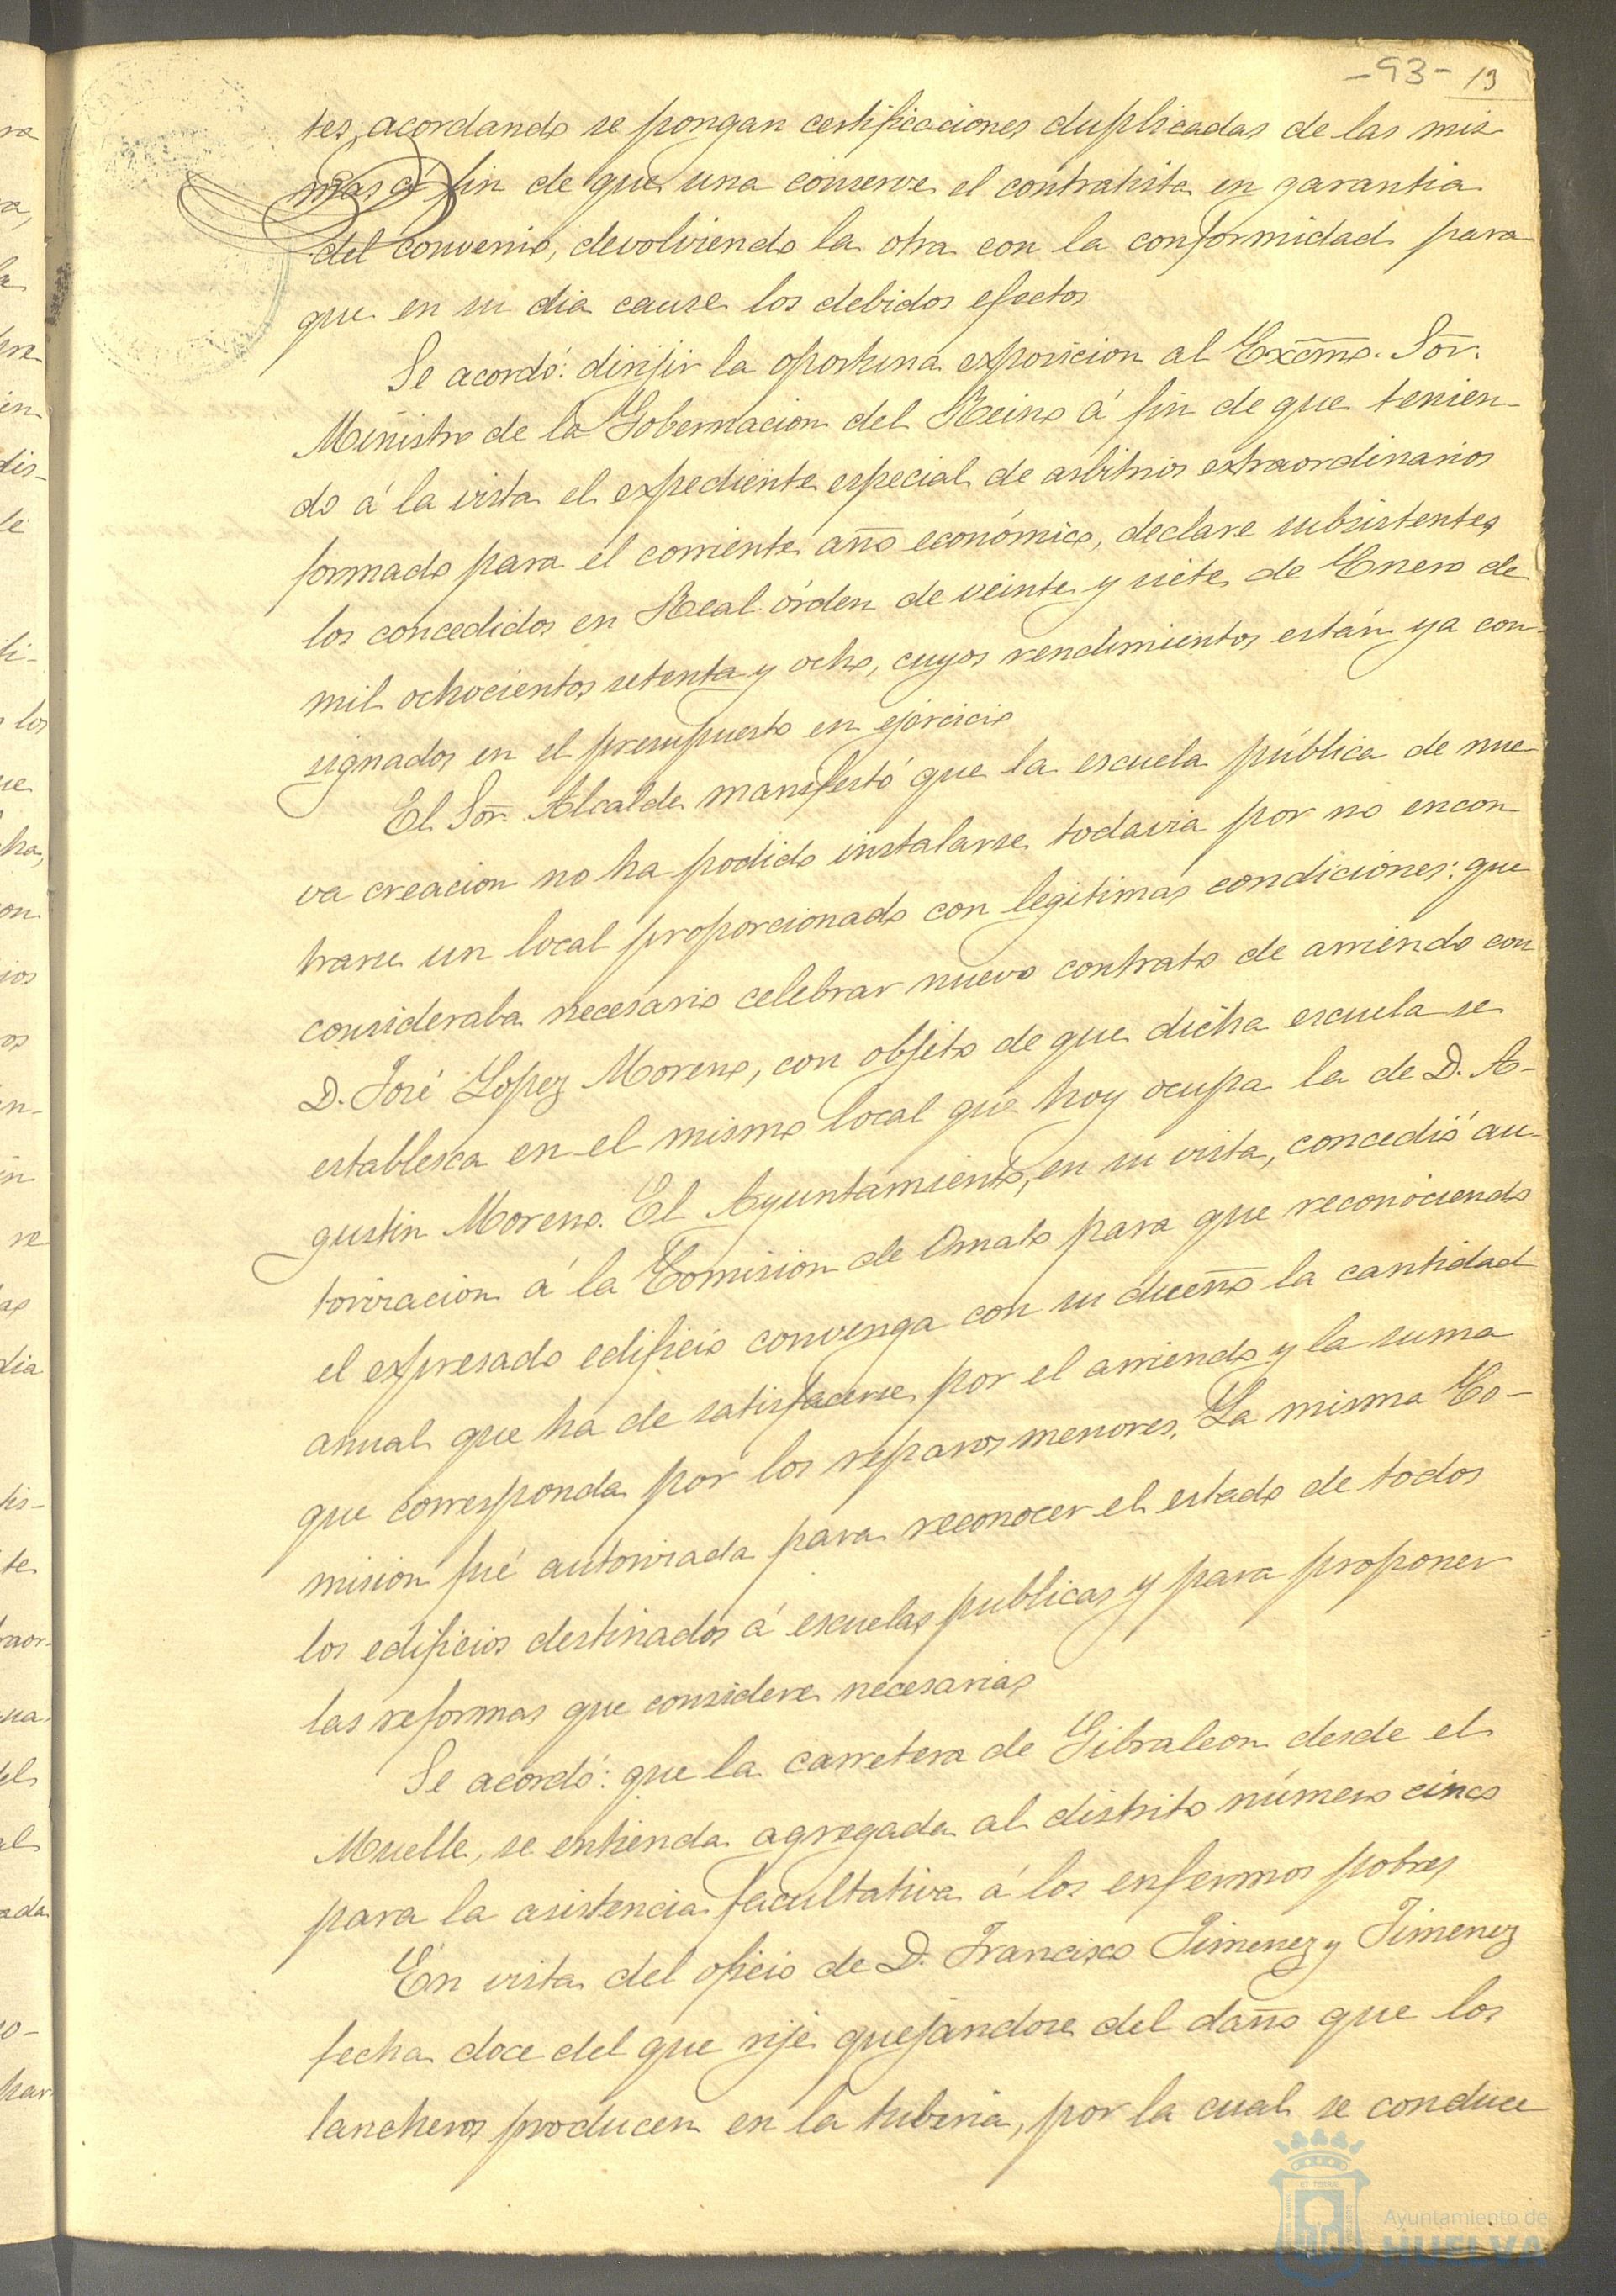 -93- 13
tes, acordando se pongan certificaciones duplicadas de las mis
mas á fin de que una conserve el contratista en garantia
del convenio, devolviendo la otra con la conformidad para
que en su dia cause los debidos efectos
Se acordó: dirijir la oportuna exposicion al Excmo. Sor.
Ministro de la Gobernacion del Reino á fin de que tenien-
do á la vista el expediente especial de arbitrios extraordinarios
formado para el corriente año económico, declare subsistentes
los concedidos en Real órden de veinte y siete de Enero de
mil ochocientos setenta y ocho, cuyos rendimientos están ya con-
signados en el presupuesto en ejercicio
El Sor. Alcalde manifestó que la escuela pública de nue-
va creacion no ha podido instalarse todavia por no encon
trarse un local proporcionado con legitimas condiciones: que
consideraba necesario celebrar nuevo contrato de arriendo con
D. José Lopez Moreno, con objeto de que dicha escuela se
establesca en el mismo local que hoy ocupa la de D. A-
gustin Moreno. El Ayuntamiento, en su vista, concedió au-
torizacion á la Comision de Ornato para que reconociendo
el expresado edificio convenga con su dueño la cantidad
anual que ha de satisfacerse por el arriendo y la suma
que corresponda por los reparos menores. La misma Co-
mision fué autorizada para reconocer el estado de todos
los edificios destinados á escuelas publicas y para proponer
las reformas que considere necesarias
Se acordó: que la carretera de Gibraleon desde el
Muelle, se entienda agregada al distrito número cinco
para la asistencia facultativa á los enfermos pobres
En vista del oficio de D. Francisco Jimenez y Jimenez
fecha doce del que rije quejandose del daño que los
lancheros producen en la tuberia, por la cual se conduce
Ayuntamiento de
HUELVA